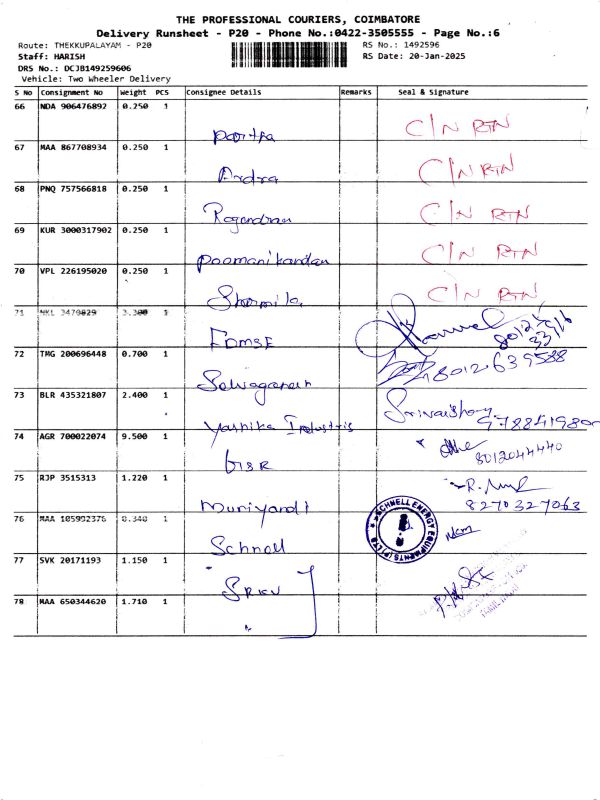 THE PROFESSIONAL COURIERS, COIMBATORE
Delivery Runsheet - P20 - Phone No.:0422-3505555 - Page No.:6
Route: THEKKUPALAYAM - P20 RS No.: 1492596
Staff: HARISH RS Date: 20-Jan-2025
DRS No.: DCJB149259606
Vehicle: Two Wheeler Delivery
S No Consignment No Weight PCS Consignee Details Remarks Seal & Signature
66 NDA 906476892 0.250 1 C/N RTN
67 MAA 867708934 0.250 1 Ardra C/N RTN
68 PNQ 757566818 0.250 1 Rajendran C/N RTN
69 KUR 3000317902 0.250 1 Poomanikandan C/N RTN
70 VPL 226195020 0.250 1 Sharmila C/N RTN
71 NKL 3470829 3.300 1
72 TMG 200696448 0.700 1 8012639588
73 BLR 435321807 2.400 1 Yashika Industris
74 AGR 700022074 9.500 1 8012044440
75 RJP 3515313 1.220 1 Muniyandi R. 8270327063
76 MAA 105992376 0.340 1 Schnell SCHNELL ENERGY EQUIPMENTS (P) LTD
77 SVK 20171193 1.150 1
78 MAA 650344620 1.710 1